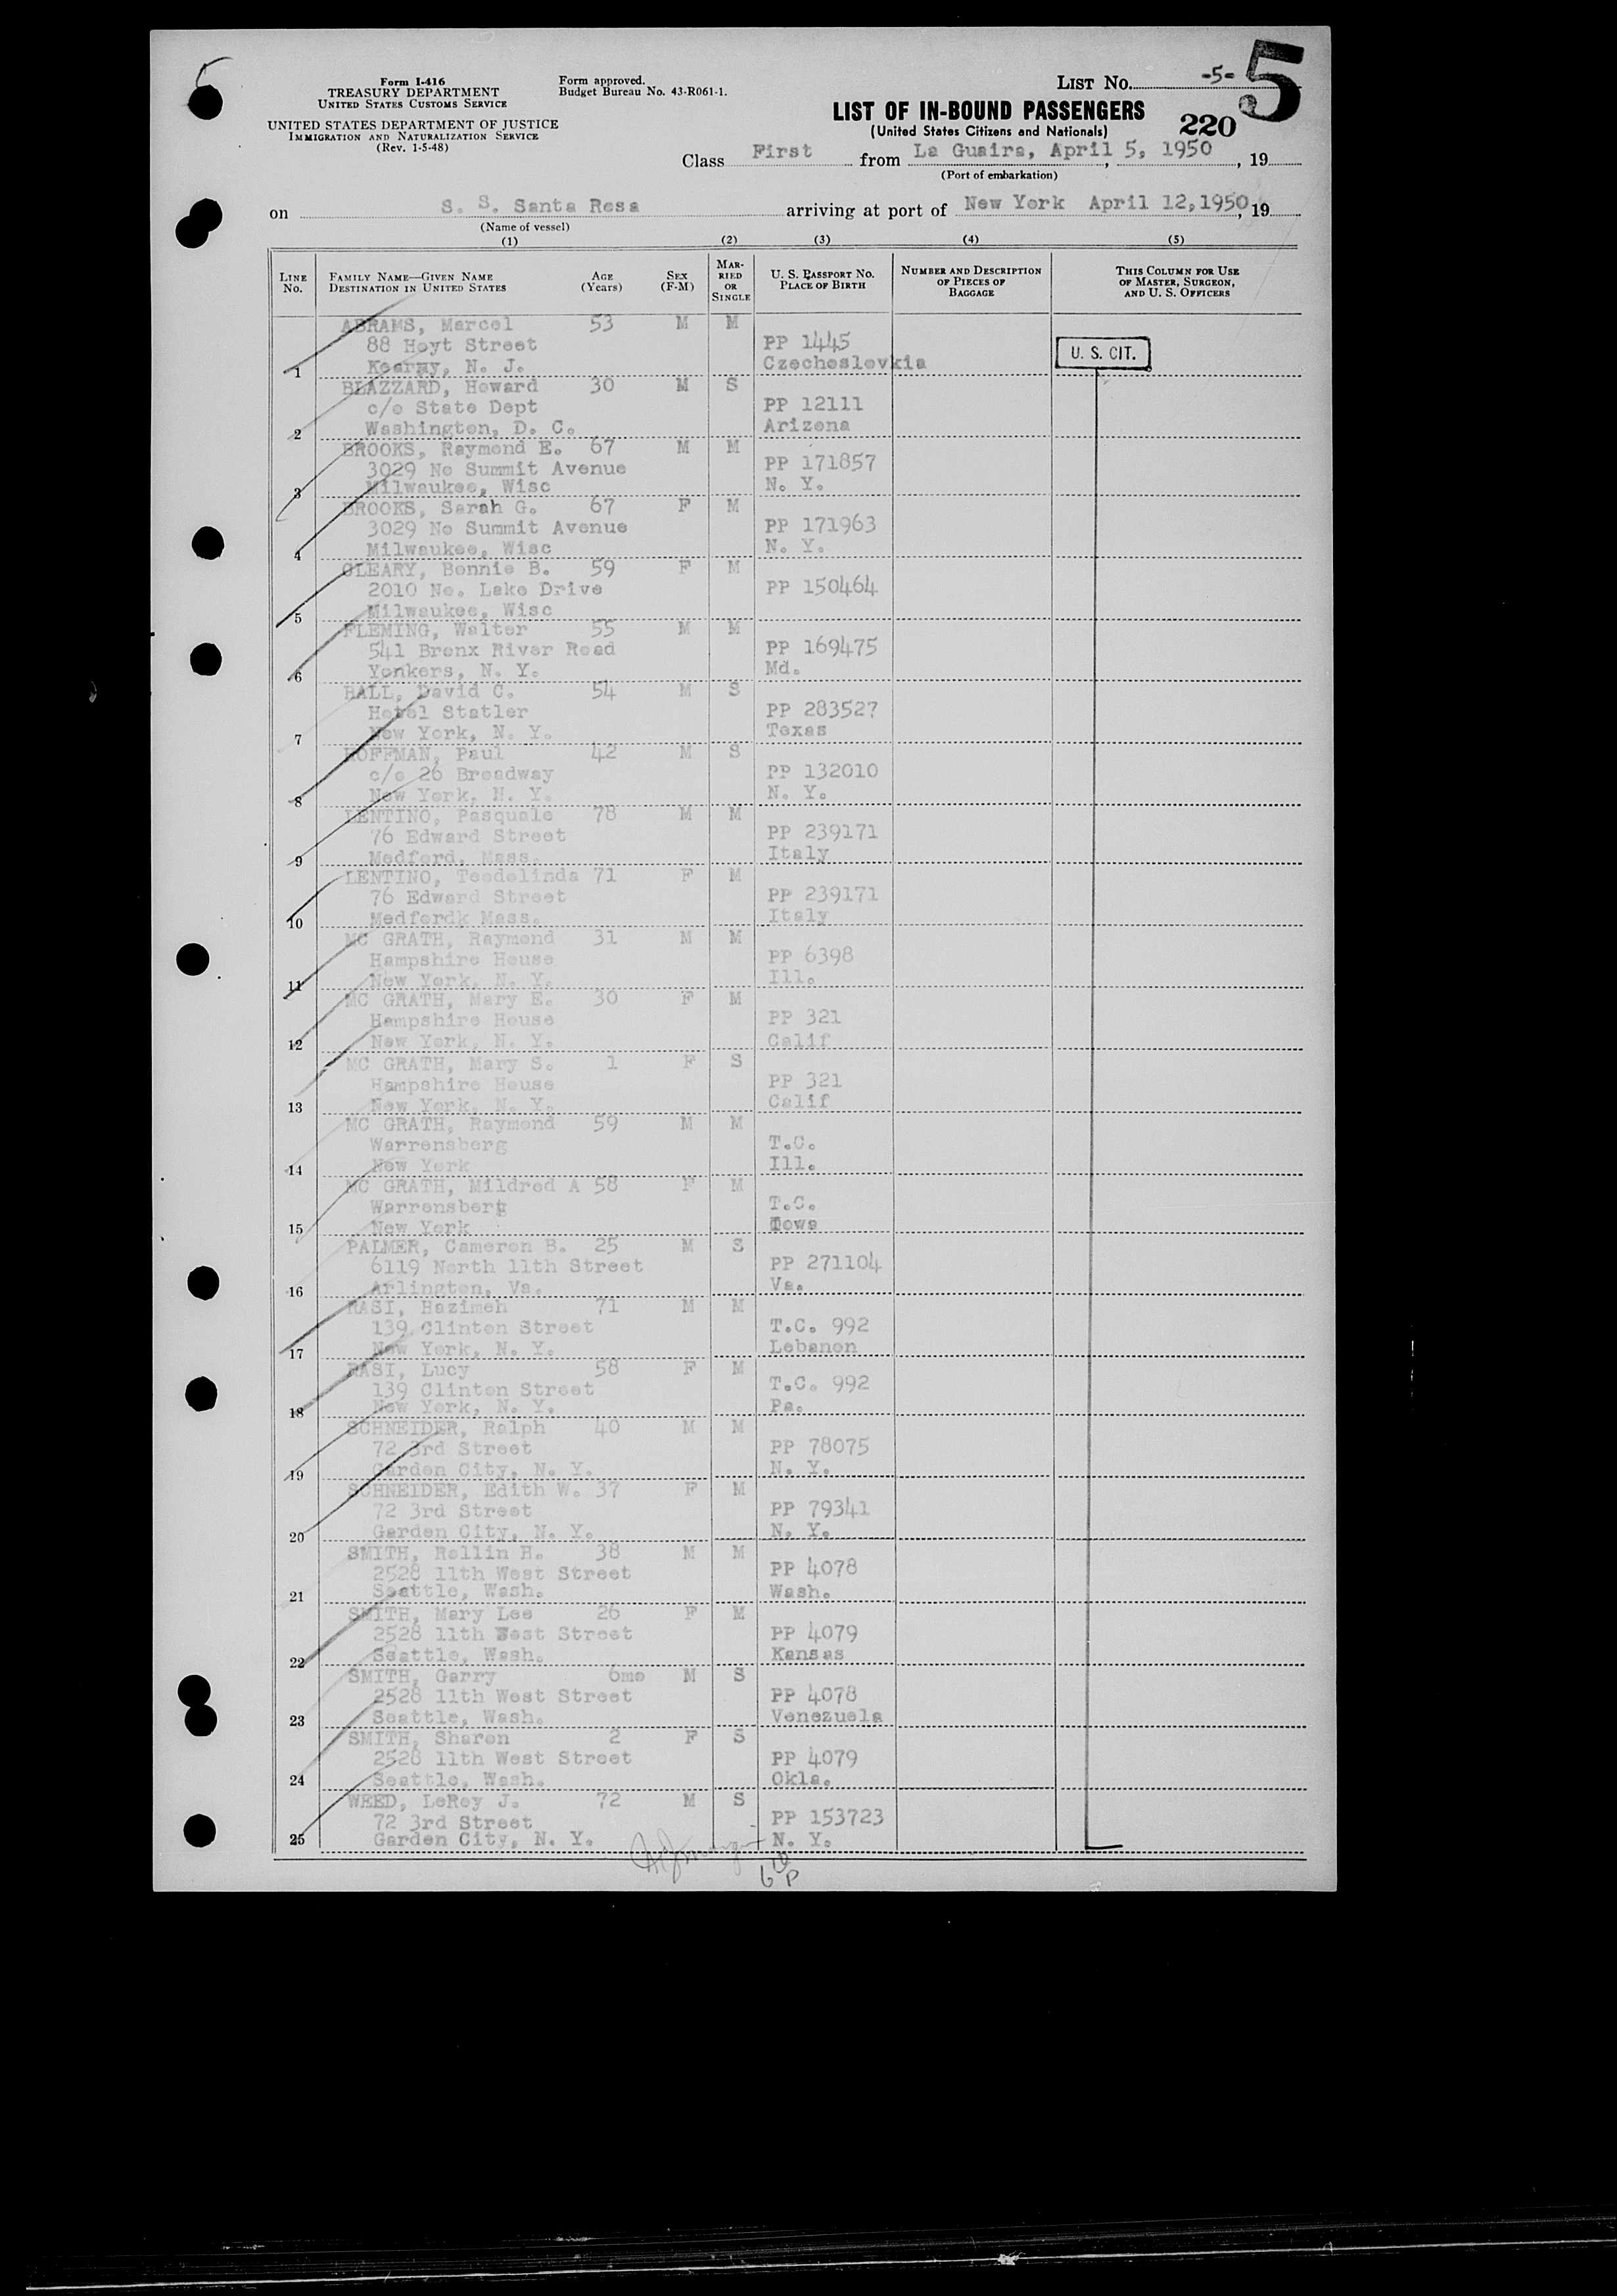 Form I-416
TREASURY DEPARTMENT
UNITED STATES CUSTOMS SERVICE
UNITED STATES DEPARTMENT OF JUSTICE
IMMIGRATION AND NATURALIZATION SERVICE
(Rev. 1-5-48)
Form approved.
Budget Bureau No. 43-R061-1.
LIST NO. -5- 5
LIST OF IN-BOUND PASSENGERS
(United States Citizens and Nationals) 220
Class First from La Guaira, April 5, 1950, 19
(Port of embarkation)
on S. S. Santa Rosa arriving at port of New York April 12, 1950, 19
(Name of vessel)
(1) (2) (3) (4) (5)
LINE NO. FAMILY NAME—GIVEN NAME DESTINATION IN UNITED STATES AGE (Years) SEX (F-M) MARRIED OR SINGLE U. S. PASSPORT NO. PLACE OF BIRTH NUMBER AND DESCRIPTION OF PIECES OF BAGGAGE THIS COLUMN FOR USE OF MASTER, SURGEON, AND U. S. OFFICERS
ABRAMS, Marcel 53 M M
88 Hoyt Street PP 1445
1 Kearny, N. J. Czechoslovkia U. S. CIT.
BLAZZARD, Howard 30 M S
c/o State Dept PP 12111
2 Washington, D. C. Arizona
BROOKS, Raymond E. 67 M M
3029 No Summit Avenue PP 171857
3 Milwaukee, Wisc N. Y.
BROOKS, Sarah G. 67 F M
3029 No Summit Avenue PP 171963
4 Milwaukee, Wisc N. Y.
OLEARY, Bonnie B. 59 F M
2010 No. Lake Drive PP 150464
5 Milwaukee, Wisc
FLEMING, Walter 55 M M
541 Bronx River Road PP 169475
6 Yonkers, N. Y. Md.
HALL, David C. 54 M S
Hotel Statler PP 283527
7 New York, N. Y. Texas
HOFFMAN, Paul 42 M S
c/o 26 Broadway PP 132010
8 New York, N. Y. N. Y.
LENTINO, Pasquale 78 M M
76 Edward Street PP 239171
9 Medford, Mass. Italy
LENTINO, Teodolinda 71 F M
76 Edward Street PP 239171
10 Medfordk Mass. Italy
MC GRATH, Raymond 31 M M
Hampshire House PP 6398
11 New York, N. Y. Ill.
MC GRATH, Mary E. 30 F M
Hampshire House PP 321
12 New York, N. Y. Calif
MC GRATH, Mary S. 1 F S
Hampshire House PP 321
13 New York, N. Y. Calif
MC GRATH, Raymond 59 M M
Warrensberg T.C.
14 New York Ill.
MC GRATH, Mildred A 58 F M
Warrensberg T.C.
15 New York Iowa
PALMER, Cameron B. 25 M S
6119 North 11th Street PP 271104
16 Arlington, Va. Va.
RASI, Hazimeh 71 M M
139 Clinton Street T.C. 992
17 New York, N. Y. Lebanon
RASI, Lucy 58 F M
139 Clinton Street T.C. 992
18 New York, N. Y. Pa.
SCHNEIDER, Ralph 40 M M
72 3rd Street PP 78075
19 Garden City, N. Y. N. Y.
SCHNEIDER, Edith W. 37 F M
72 3rd Street PP 79341
20 Garden City, N. Y. N. Y.
SMITH, Rollin H. 38 M M
2528 11th West Street PP 4078
21 Seattle, Wash. Wash.
SMITH, Mary Lee 26 F M
2528 11th West Street PP 4079
22 Seattle, Wash. Kansas
SMITH, Garry 6mo M S
2528 11th West Street PP 4078
23 Seattle, Wash. Venezuela
SMITH, Sharon 2 F S
2528 11th West Street PP 4079
24 Seattle, Wash. Okla.
WEED, LeRoy J. 72 M S
72 3rd Street PP 153723
25 Garden City, N. Y. N. Y.